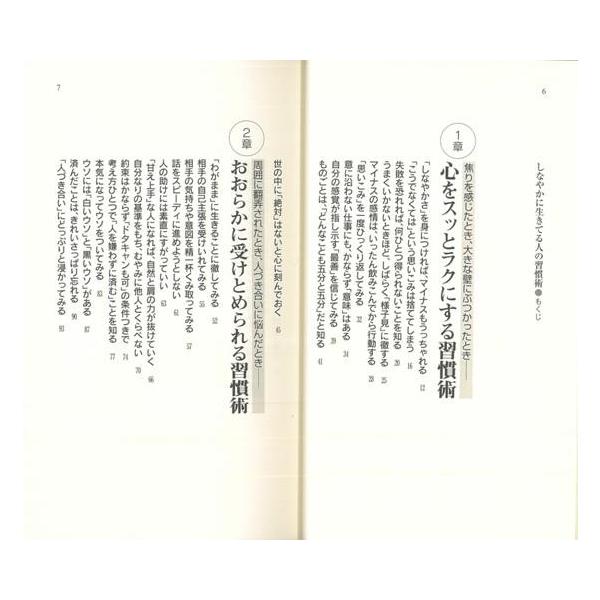 しなやかに生きてる人の習慣術●もくじ
6
1章
焦りを感じたとき、大きな壁にぶつかったとき――
心をスッとラクにする習慣術
「しなやかさ」を身につければ、マイナスもうっちゃれる 12
「こうでなくては」という思いこみは捨ててしまう 16
失敗を恐れれば、何ひとつ得られないことを知る 20
うまくいかないときほど、しばらく、「様子見」に徹する 25
マイナスの感情は、いったん飲みこんでから行動する 28
「思いこみ」を一度ひっくり返してみる 32
意に沿わない仕事にも、かならず「意味」はある 34
自分の感覚が指し示す、「最善」を信じてみる 39
ものごとは、「どんなことも五分と五分」だと知る 41
世の中に、「絶対」はないと心に刻んでおく 45
2章
周囲に翻弄されたとき、人づき合いに悩んだとき――
おおらかに受けとめられる習慣術
「わがまま」に生きることに徹してみる 52
相手の自己主張を受けいれてみる 55
相手の気持ちや意図を精一杯くみ取ってみる 57
話をスピーディに進めようとしない 61
人の助けには素直にすがっていい 63
「甘え上手」な人になれば、自然と肩の力が抜けていく 66
自分なりの基準をもち、むやみに他人とくらべない 70
約束はかならず、「ドタキャンも可」の条件つきで 74
考え方ひとつで、「人を嫌わずに済む」ことを知る 77
本気になってウソをついてみる 83
ウソには、「白いウソ」と、「黒いウソ」がある 87
済んだことは、きれいさっぱり忘れる 90
「人づき合い」にどっぷりと浸かってみる 93
7